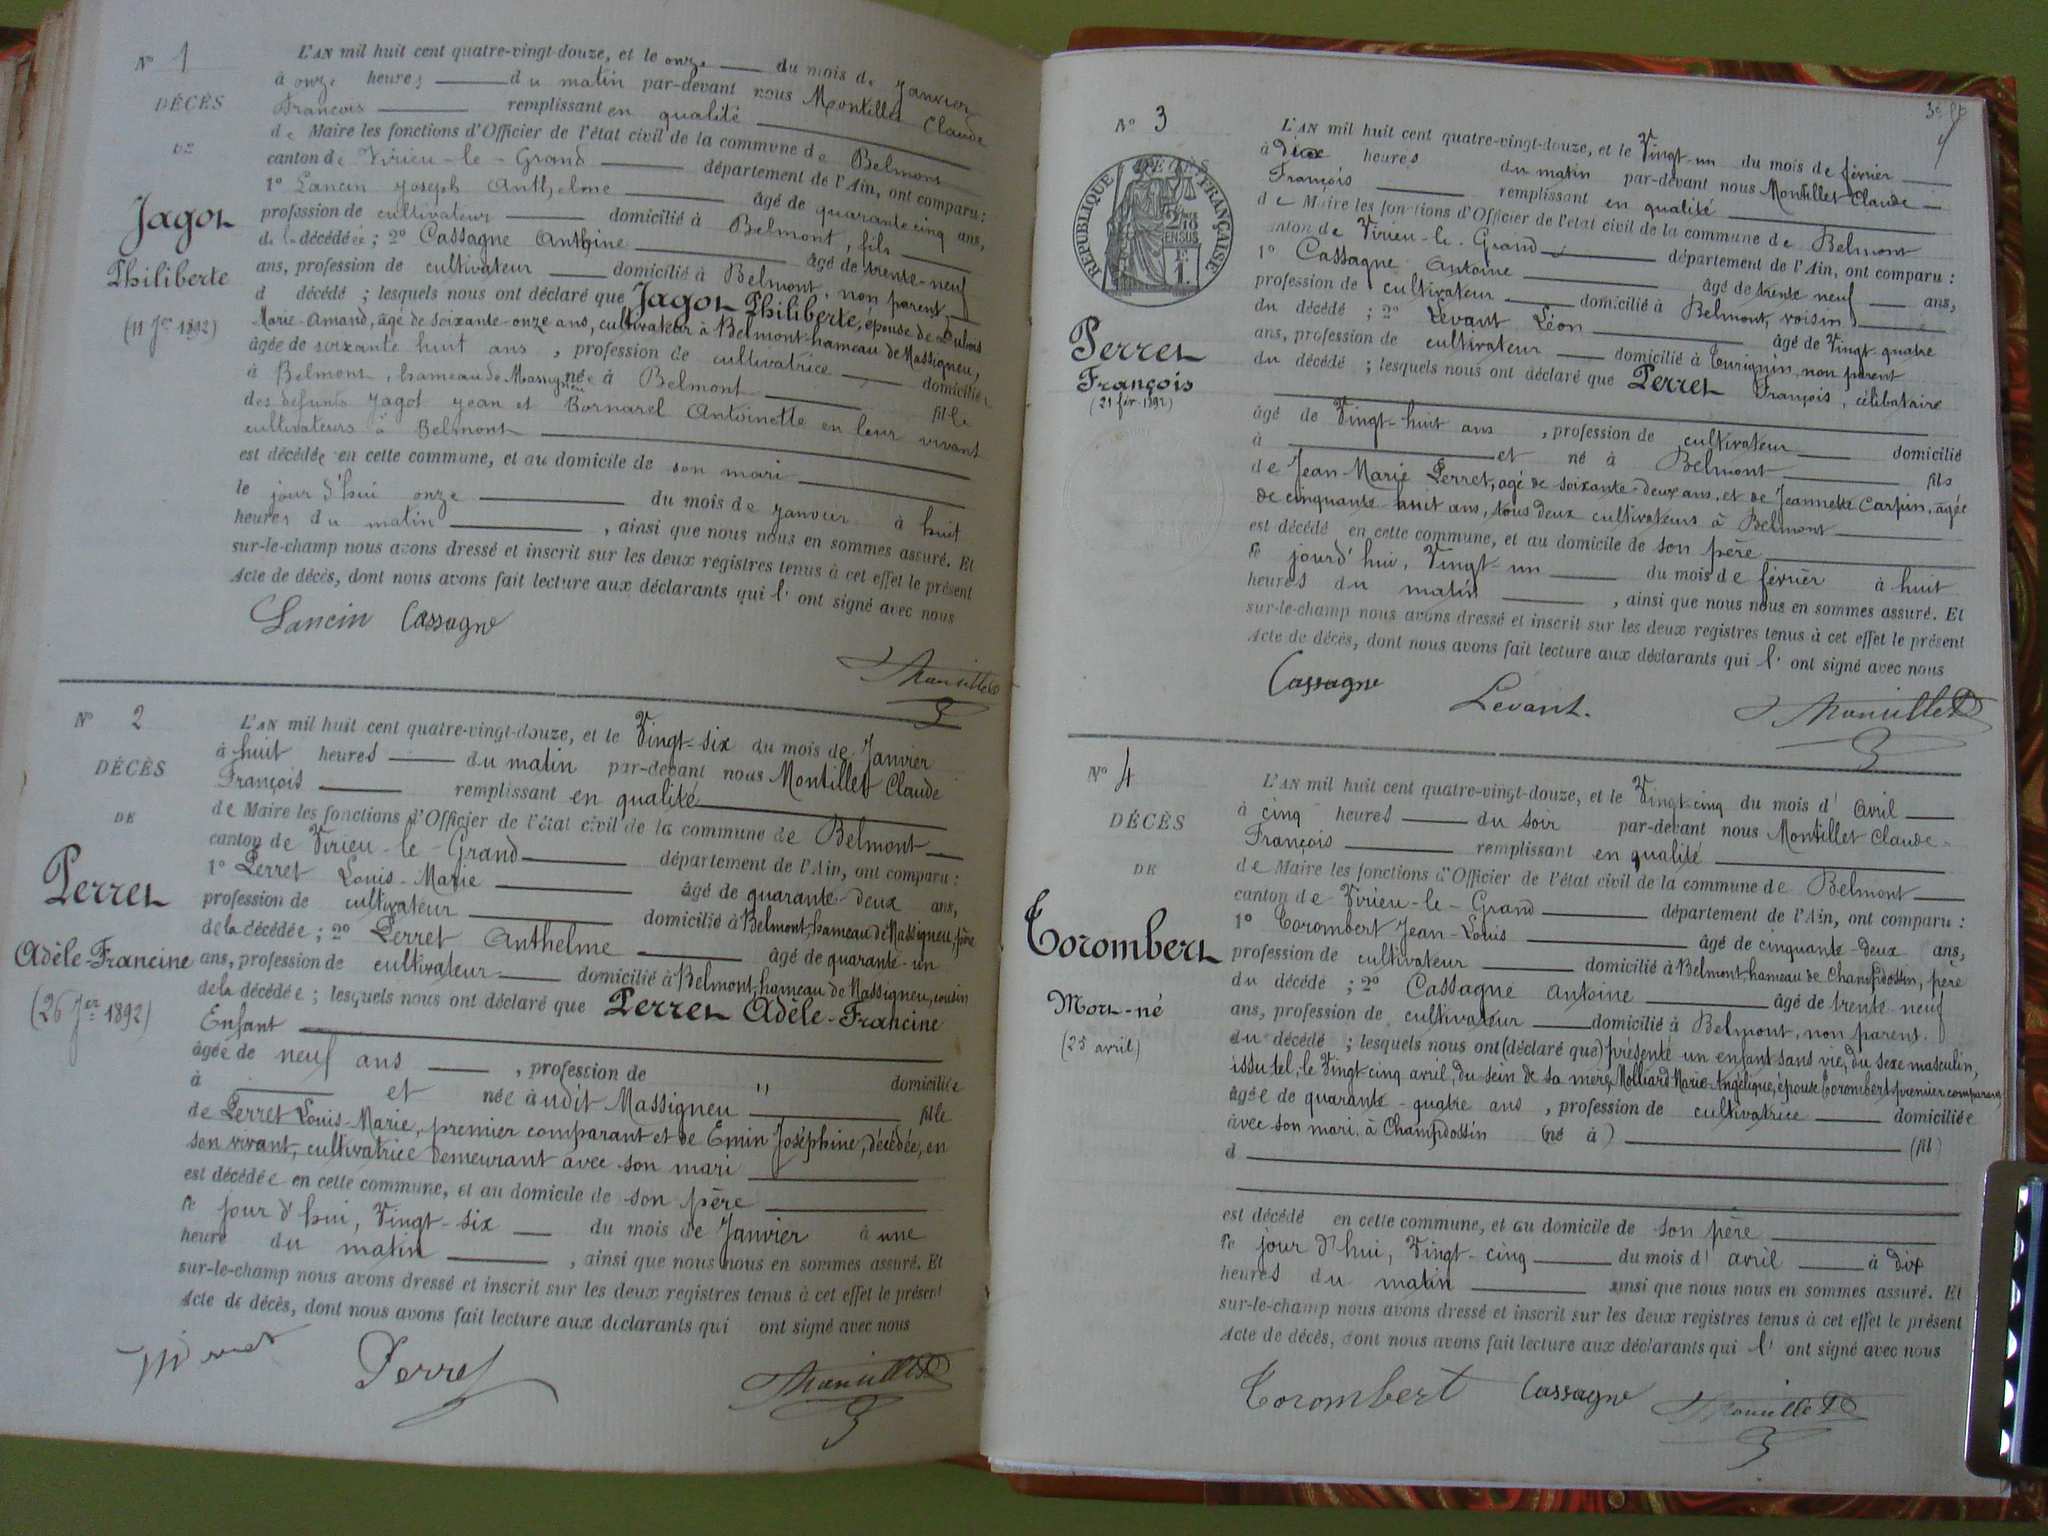 N° 1
DÉCÈS
DE
Jagot
Philiberte
(11 Jer 1892)
L'AN mil huit cent quatre-vingt-douze, et le onze du mois de Janvier
à onze heures du matin par-devant nous Montillet Claude
François remplissant en qualité
de Maire les fonctions d'Officier de l'état civil de la commune de Belmont
canton de Virieu-le-Grand département de l'Ain, ont comparu :
1° Lancin Joseph Anthelme âgé de quarante cinq ans,
profession de cultivateur domicilié à Belmont, fils
de la décédée ; 2° Cassagne Antoine âgé de trente-neuf
ans, profession de cultivateur domicilié à Belmont, non parent
d décédé ; lesquels nous ont déclaré que Jagot Philiberte, épouse de Dubois
Marie-Amand, âgé de soixante-onze ans, cultivateur à Belmont-hameau de Massigneu,
âgée de soixante huit ans , profession de cultivatrice domiciliée
à Belmont, hameau de Massigneu née à Belmont fille
des défunts Jagot Jean et Bornarel Antoinette en leur vivant
cultivateurs à Belmont
est décédée en cette commune, et au domicile de son mari
le jour d'hui onze du mois de janvier à huit
heures du matin , ainsi que nous nous en sommes assuré. Et
sur-le-champ nous avons dressé et inscrit sur les deux registres tenus à cet effet le présent
Acte de décès, dont nous avons fait lecture aux déclarants qui l' ont signé avec nous
Lancin Cassagne
Montillet
N° 2
DÉCÈS
DE
Perret
Adèle-Francine
(26 Jer 1892)
L'AN mil huit cent quatre-vingt-douze, et le Vingt-six du mois de Janvier
à huit heures du matin par-devant nous Montillet Claude
François remplissant en qualité
de Maire les fonctions d'Officier de l'état civil de la commune de Belmont
canton de Virieu-le-Grand département de l'Ain, ont comparu :
1° Perret Louis-Marie âgé de quarante-deux ans,
profession de cultivateur domicilié à Belmont, hameau de Massigneu, père
de la décédée ; 2° Perret Anthelme âgé de quarante-un
ans, profession de cultivateur domicilié à Belmont, hameau de Massigneu, cousin
de la décédée ; lesquels nous ont déclaré que Perret Adèle-Francine
Enfant
âgée de neuf ans , profession de " domiciliée
à et née à udit Massigneu fille
de Perret Louis-Marie, premier comparant et de Emin Joséphine, décédée, en
son vivant, cultivatrice demeurant avec son mari
est décédée en cette commune, et au domicile de son père
le jour d'hui, Vingt-six du mois de Janvier à une
heure du matin , ainsi que nous nous en sommes assuré. Et
sur-le-champ nous avons dressé et inscrit sur les deux registres tenus à cet effet le présent
Acte de décès, dont nous avons fait lecture aux déclarants qui ont signé avec nous
Perret Montillet
N° 3
DÉCÈS
RÉPUBLIQUE FRANÇAISE
2/10 EN SUS
F 1.
Perret
François
(21 fév. 1892)
L'AN mil huit cent quatre-vingt-douze, et le Vingt-un du mois de février
à dix heures du matin par-devant nous Montillet Claude
François remplissant en qualité
de Maire les fonctions d'Officier de l'état civil de la commune de Belmont
canton de Virieu-le-Grand département de l'Ain, ont comparu :
1° Cassagne Antoine âgé de trente neuf ans,
profession de cultivateur domicilié à Belmont, voisin
du décédé ; 2° Levant Léon âgé de Vingt-quatre
ans, profession de cultivateur domicilié à Curignin, non parent
du décédé ; lesquels nous ont déclaré que Perret François, célibataire
âgé de Vingt-huit ans , profession de cultivateur domicilié
à et né à Belmont fils
de Jean-Marie Perret, âgé de soixante-deux ans, et de Jeannette Carpin, âgée
de cinquante-huit ans, tous deux cultivateurs à Belmont
est décédé en cette commune, et au domicile de son père
le jourd'hui, Vingt-un du mois de février à huit
heures du matin , ainsi que nous nous en sommes assuré. Et
sur-le-champ nous avons dressé et inscrit sur les deux registres tenus à cet effet le présent
Acte de décès, dont nous avons fait lecture aux déclarants qui l' ont signé avec nous
Cassagne Levant. Montillet
N° 4
DÉCÈS
DE
Corombert
Mort-né
(25 avril)
L'AN mil huit cent quatre-vingt-douze, et le Vingt cinq du mois d' avril
à cinq heures du soir par-devant nous Montillet Claude-
François remplissant en qualité
de Maire les fonctions d'Officier de l'état civil de la commune de Belmont
canton de Virieu-le-Grand département de l'Ain, ont comparu :
1° Corombert Jean-Louis âgé de cinquante-deux ans,
profession de cultivateur domicilié à Belmont, hameau de Champdossin, père
du décédé ; 2° Cassagne Antoine âgé de trente neuf
ans, profession de cultivateur domicilié à Belmont, non parent.
du décédé ; lesquels nous ont (déclaré que) présenté un enfant sans vie, du sexe masculin,
issu tel, le Vingt cinq avril, du sein de sa mère Molliard Marie-Angélique, épouse Corombert premier comparant,
âgée de quarante-quatre ans , profession de cultivatrice domiciliée
avec son mari, à Champdossin (né à) (fil)
d
est décédé en cette commune, et au domicile de son père
le jour d'hui, Vingt-cinq du mois d' avril à dix
heures du matin ainsi que nous nous en sommes assuré. Et
sur-le-champ nous avons dressé et inscrit sur les deux registres tenus à cet effet le présent
Acte de décès, dont nous avons fait lecture aux déclarants qui l' ont signé avec nous
Corombert Cassagne Montillet